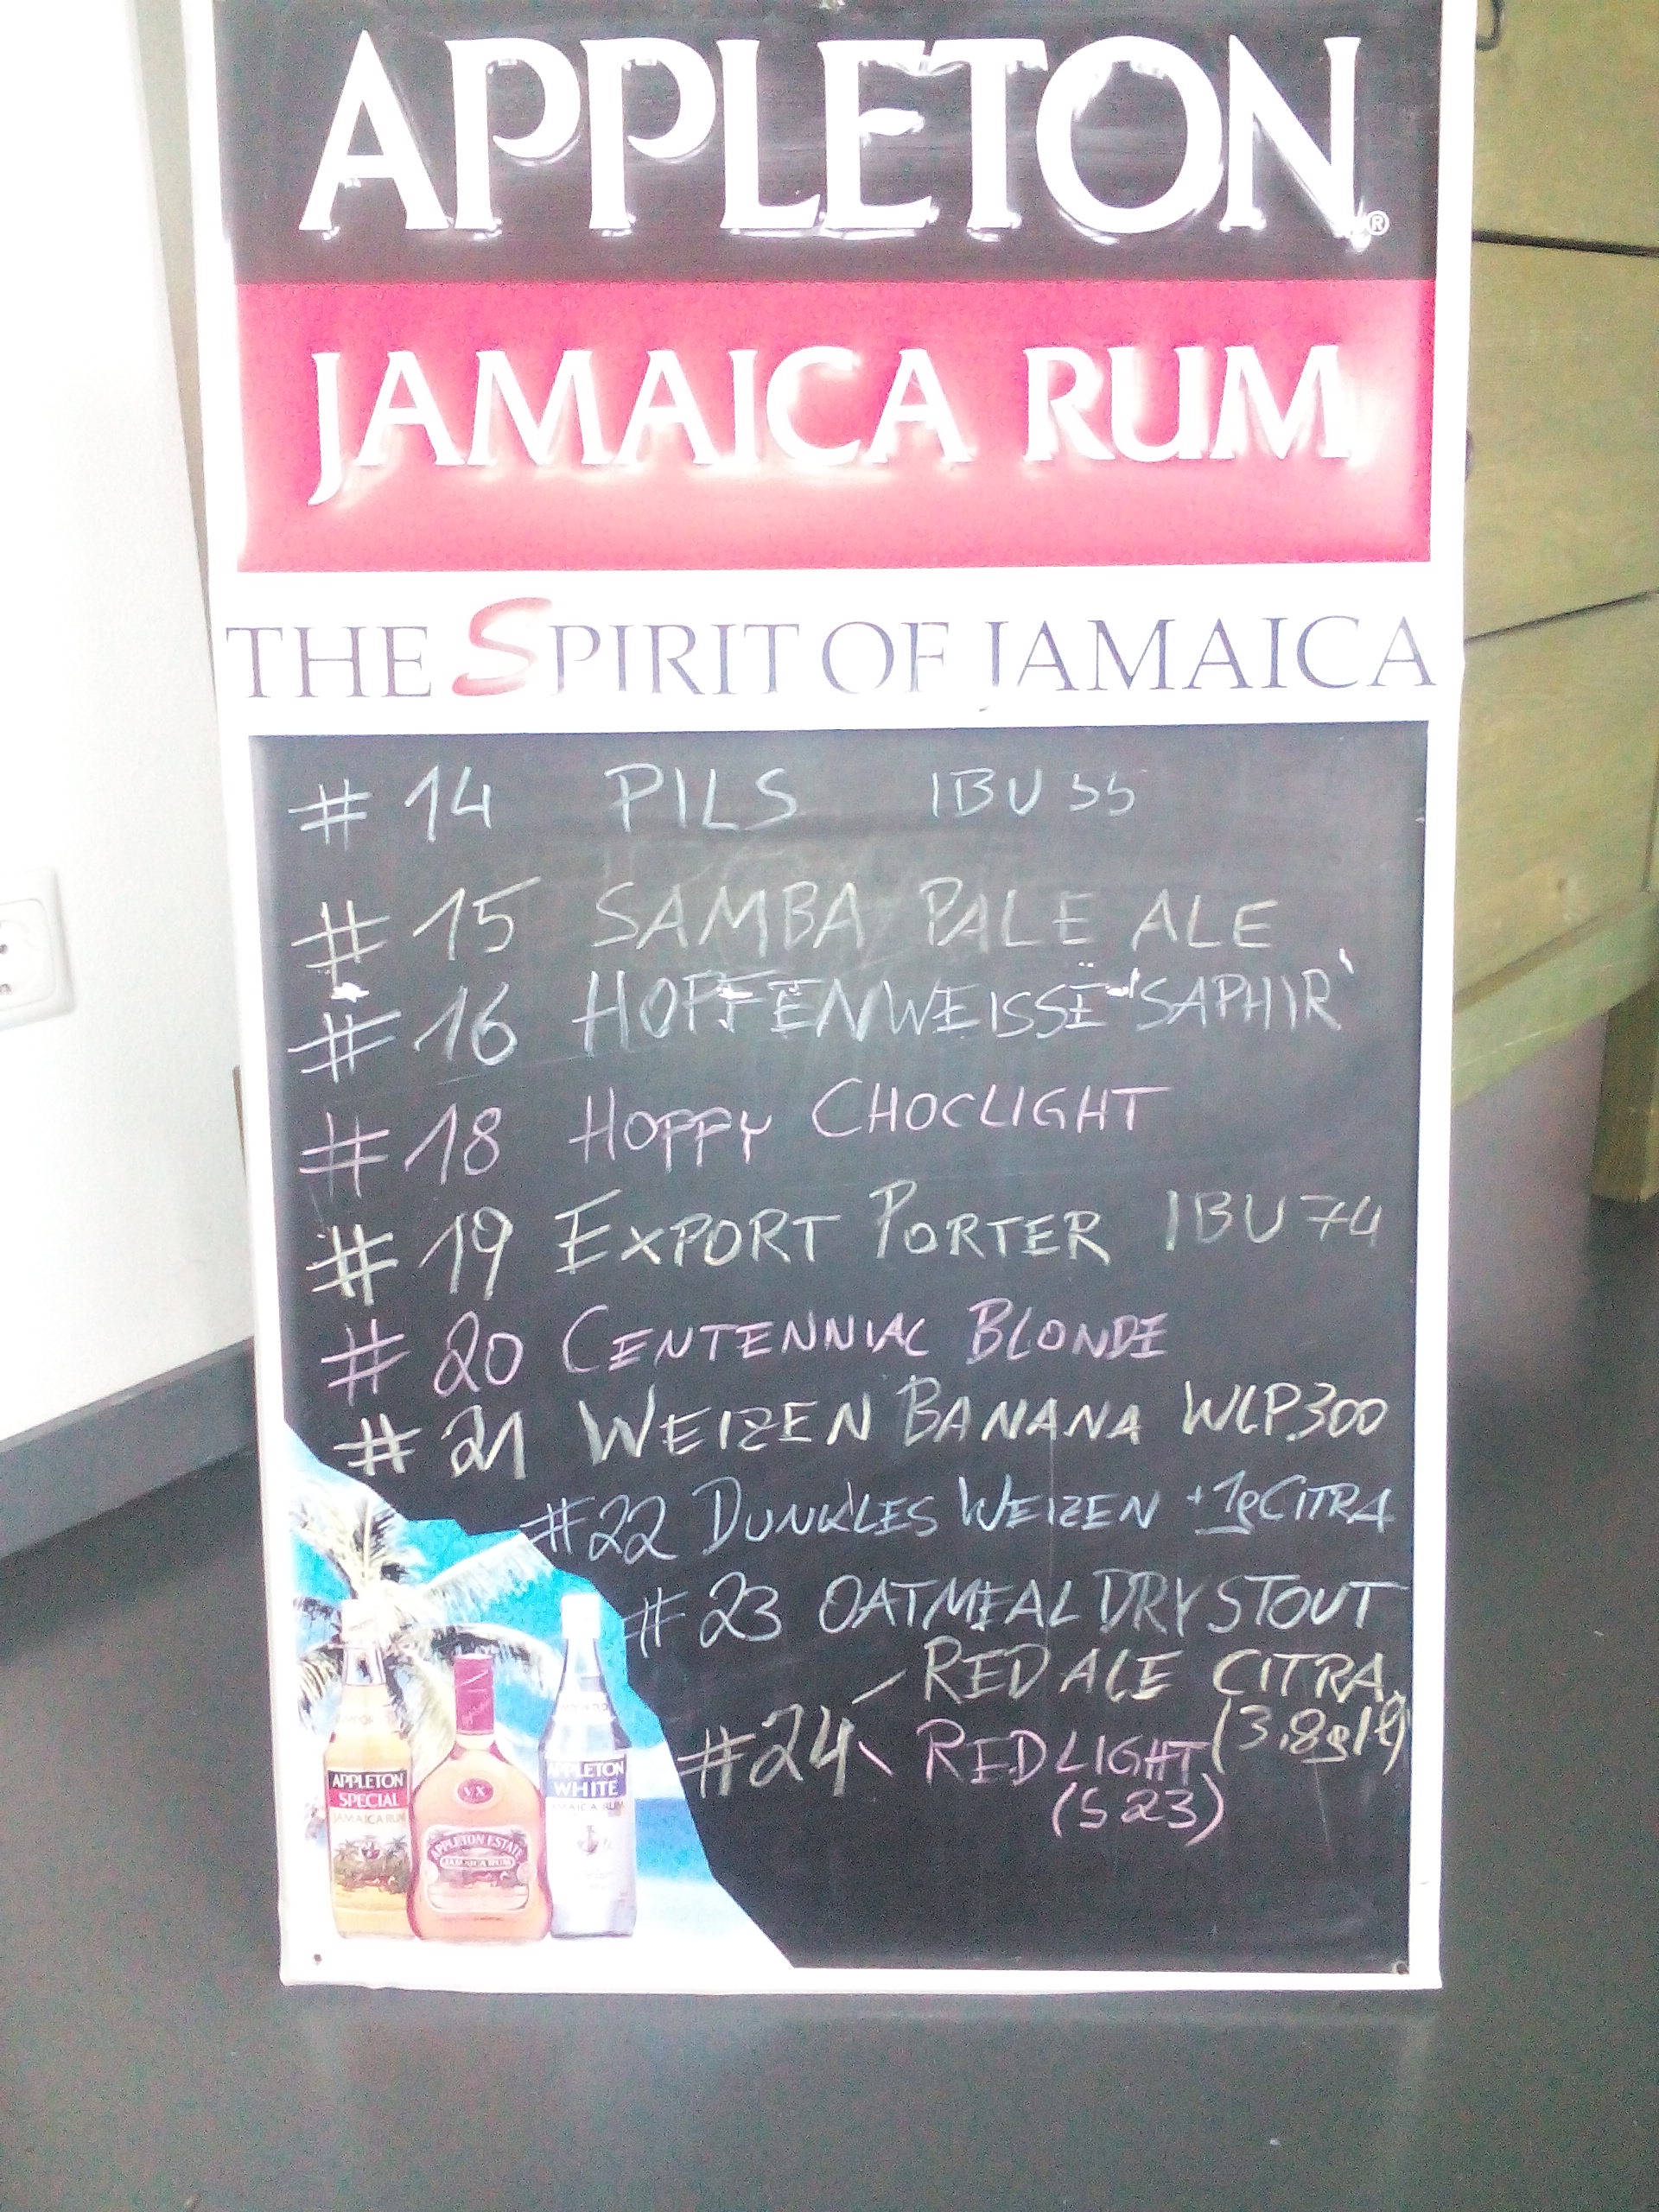 APPLETON®
JAMAICA RUM
THE SPIRIT OF JAMAICA
# 14 PILS IBU 55
# 15 SAMBA PALE ALE
# 16 HOPFENWEISSE "SAPHIR"
# 18 HOPPY CHOCLIGHT
# 19 EXPORT PORTER IBU 74
# 20 CENTENNIAL BLONDE
# 21 WEIZEN BANANA WLP300
#22 DUNKLES WEIZEN +1g CITRA
#23 OATMEAL DRY STOUT
RED ALE CITRA
(3,8g/l)
#24
RED LIGHT
(S 23)
APPLETON
SPECIAL
JAMAICA RUM
V/X
APPLETON ESTATE
JAMAICA RUM
APPLETON
WHITE
JAMAICA RUM